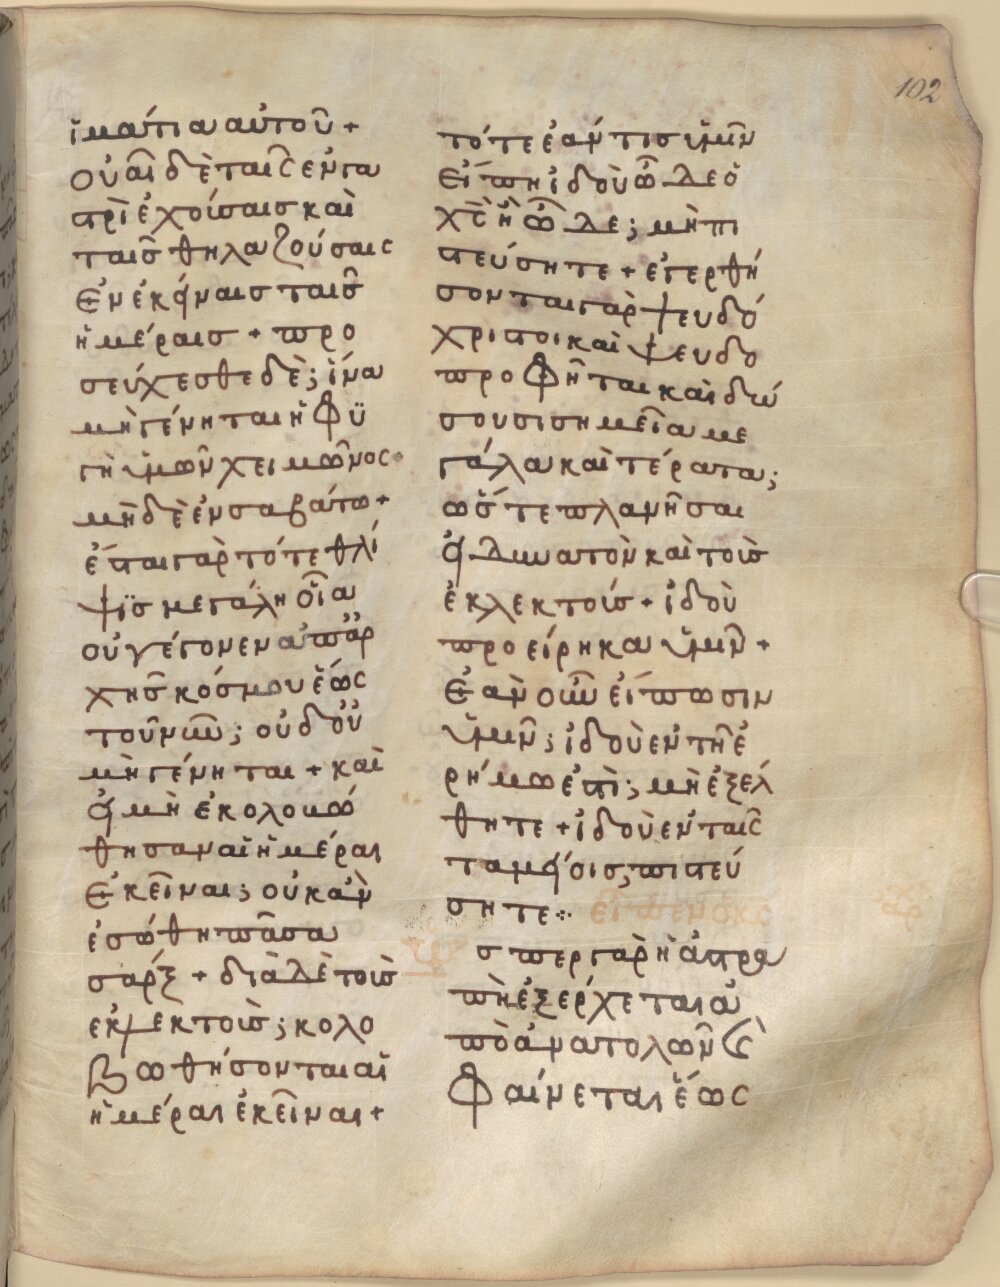 102
ἱμάτια αὐτοῦ +
Οὐαὶ δὲ ταῖς ἐν γα
στρὶ ἐχούσαις καὶ
ταῖς θηλαζούσαις
Ἐν ἐκείναις ταῖς
ἡμέραις + προ
σεύχεσθε δὲ; ἵνα
μὴ γένηται ἡ φϋ
γὴ ὑμῶν χειμῶνος
μὴ δὲ ἐν σαβάτω +
ἔσται γὰρ τότε θλί
ψϊς μεγάλη οἵα
οὐ γέγονεν ἀπ αρ
χῆς κόσμου ἕως
τοῦ νῦν; οὐδ οὐ
μὴ γένηται + καὶ
εἰ μὴ ἐκολοβώ
θησαν αἱ ἡμέραι
Ἐκεῖναι; οὐκ ἂν
ἐσώθη πᾶσα
σάρξ + διὰ δὲ τοὺς
ἐκλεκτοὺς; κολο
βωθήσονται αἱ
ἡμέραι ἐκεῖναι +
τότε ἐάν τις ὑμῖν
Εἴπη ἰδοὺ ὧδε ὁ
χς ἢ ὧδε; μὴ πι
στεύσητε + ἐγερθή
σονται γὰρ ψευδό
χριστοι καὶ ψευδο
προφῆται καὶ δώ
σουσι σημεῖα με
γάλα καὶ τέρατα;
ὥστε πλανῆσαι
εἰ δυνατὸν καὶ τοὺς
ἐκλεκτούς + ἰδοὺ
προείρηκα ὑμῖν +
Ἐὰν οὖν εἴπωσιν
ὑμῖν; ἰδοὺ ἐν τῇ ἐ
ρήμω ἐστὶ; μὴ ἐξέλ
θητε + ἰδοὺ ἐν τοῖς
ταμείοις; πιστεύ
σητε εἶπεν ὁ κς
σπερ γὰρ ἡ ἀστρα
πὴ ἐξέρχεται ἀ
πὸ ἀνατολῶν καὶ
Φαίνεται ἕως